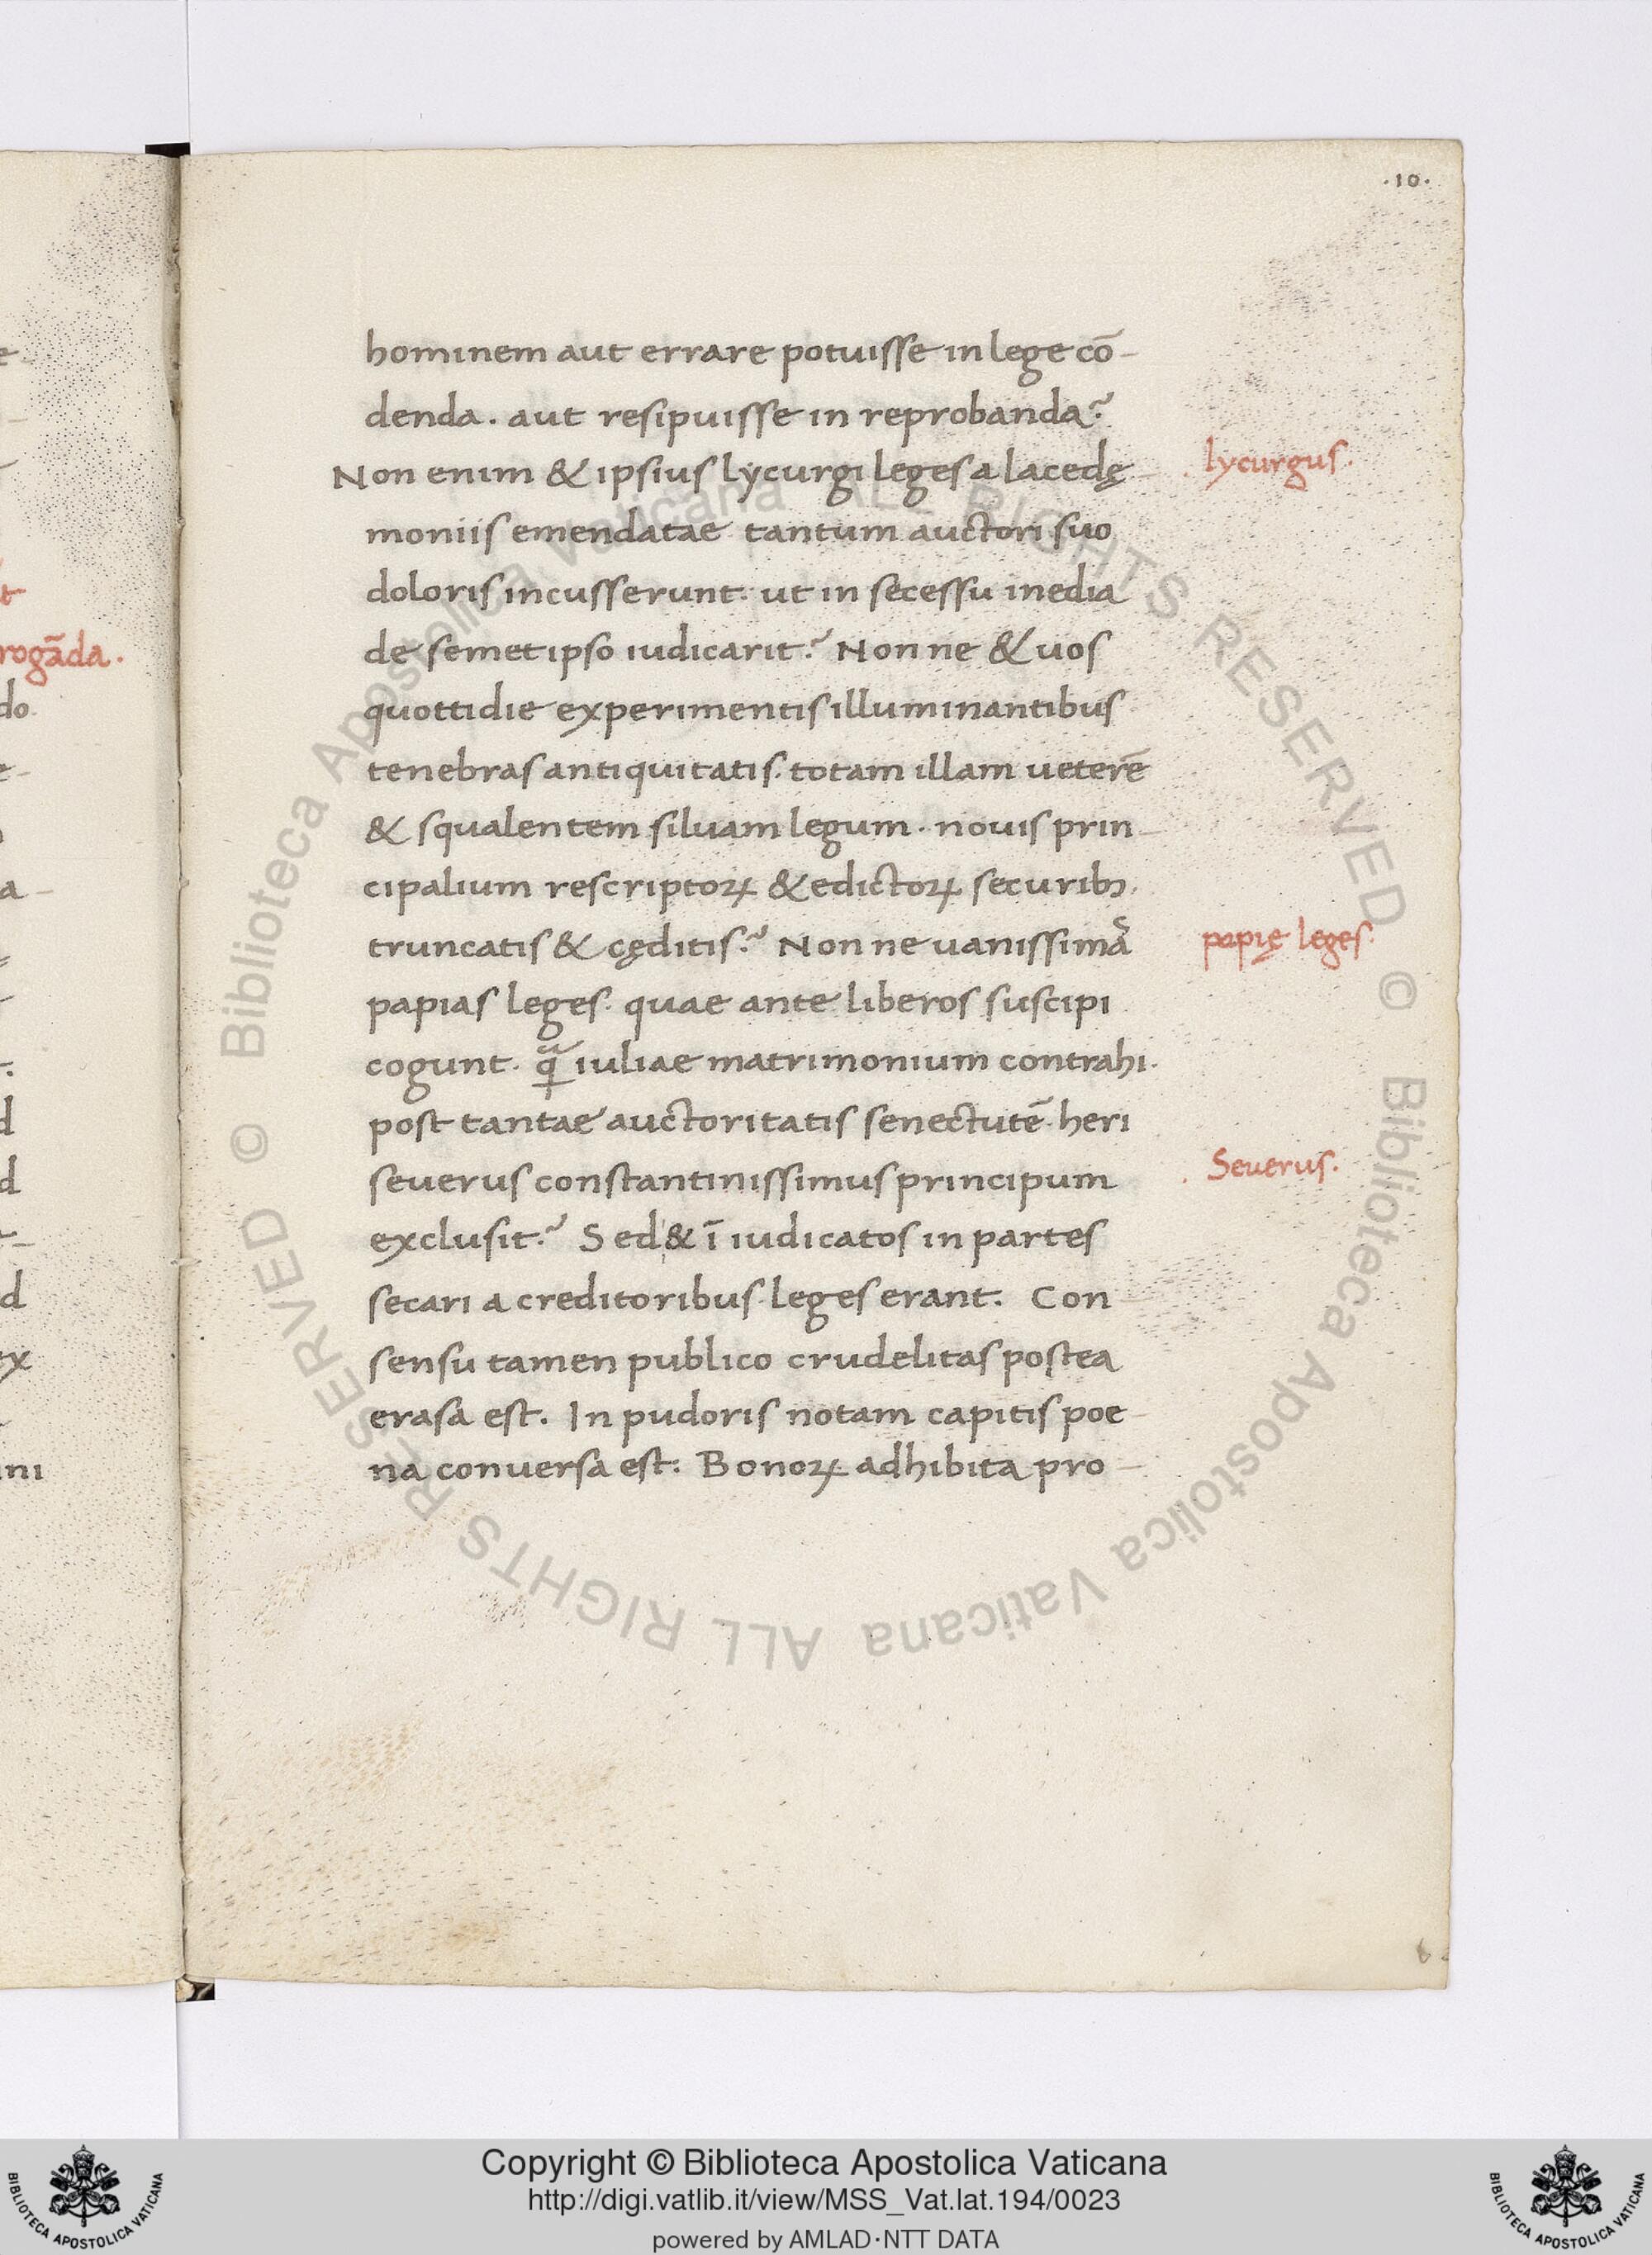 .10.
hominem aut errare potuisse in lege cō-
denda. aut resipuisse in reprobanda?
Non enim & ipsius lycurgi leges a lacedę-
moniis emendatae tantum auctori suo
doloris incusserunt. ut in secessu inedia
de semetipso iudicarit? Non ne & uos
quottidie experimentis illuminantibus
tenebras antiquitatis. totam illam ueterē
& squalentem siluam legum. nouis prin-
cipalium rescriptoꝝ & edictoꝝ securibꝫ.
truncatis & cęditis? Non ne uanissimas
papias leges. quae ante liberos suscipi
cogunt. quā iuliae matrimonium contrahi.
post tantae auctoritatis senectutē. heri
seuerus constantinissimus principum
exclusit? Sed & ī iudicatos in partes
secari a creditoribus leges erant. Con
sensu tamen publico crudelitas postea
erasa est. In pudoris notam capitis poe-
na conuersa est. Bonoꝝ adhibita pro-
lycurgus.
papię leges.
Seuerus.
rogāda.
Copyright © Biblioteca Apostolica Vaticana
http://digi.vatlib.it/view/MSS_Vat.lat.194/0023
powered by AMLAD·NTT DATA
BIBLIOTECA APOSTOLICA VATICANA
BIBLIOTECA APOSTOLICA VATICANA
© Biblioteca Apostolica Vaticana ALL RIGHTS RESERVED © Biblioteca Apostolica Vaticana ALL RIGHTS RESERVED